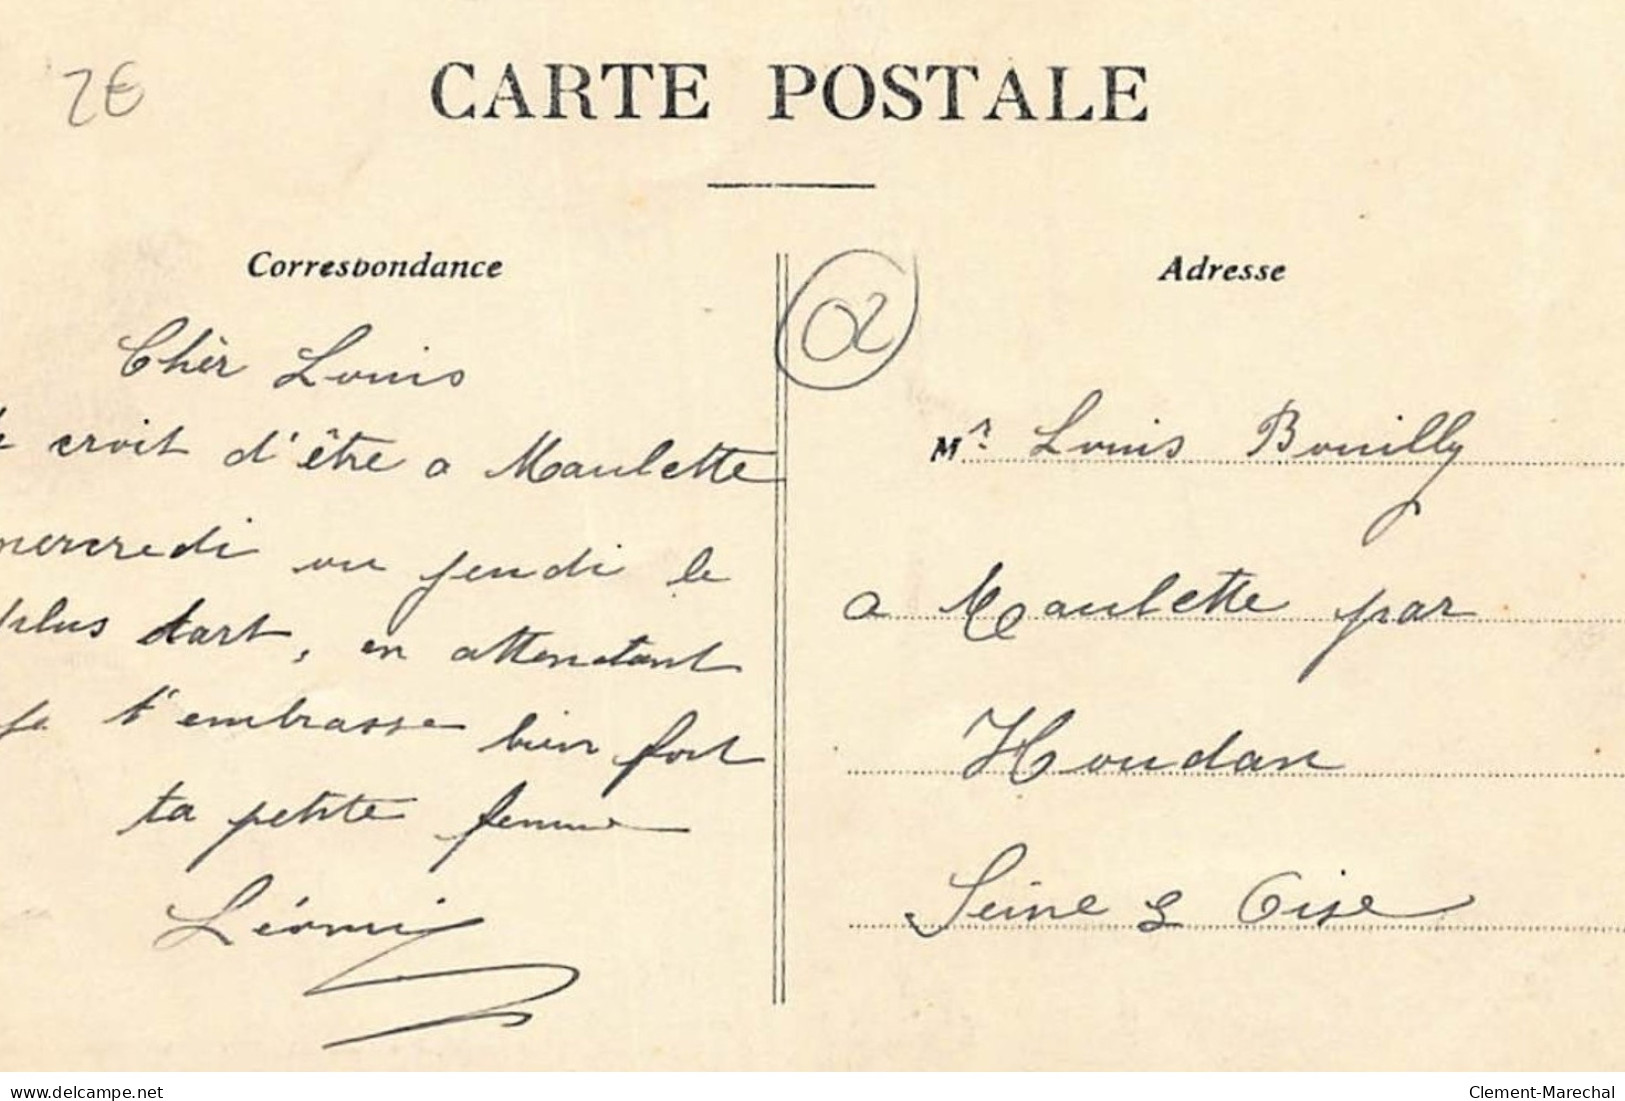 2€
CARTE POSTALE
Correspondance
Adresse
02
Chèr Louis
croit d'être a Maulette
mercredi ou jeudi le
plus tart, en attendant
je t'embrasse bien fort
ta petite femme
Léonie
Mr. Louis Bouilly
a Maulette par
Houdan
Seine & Oise
delcampe.net
Clement-Marechal